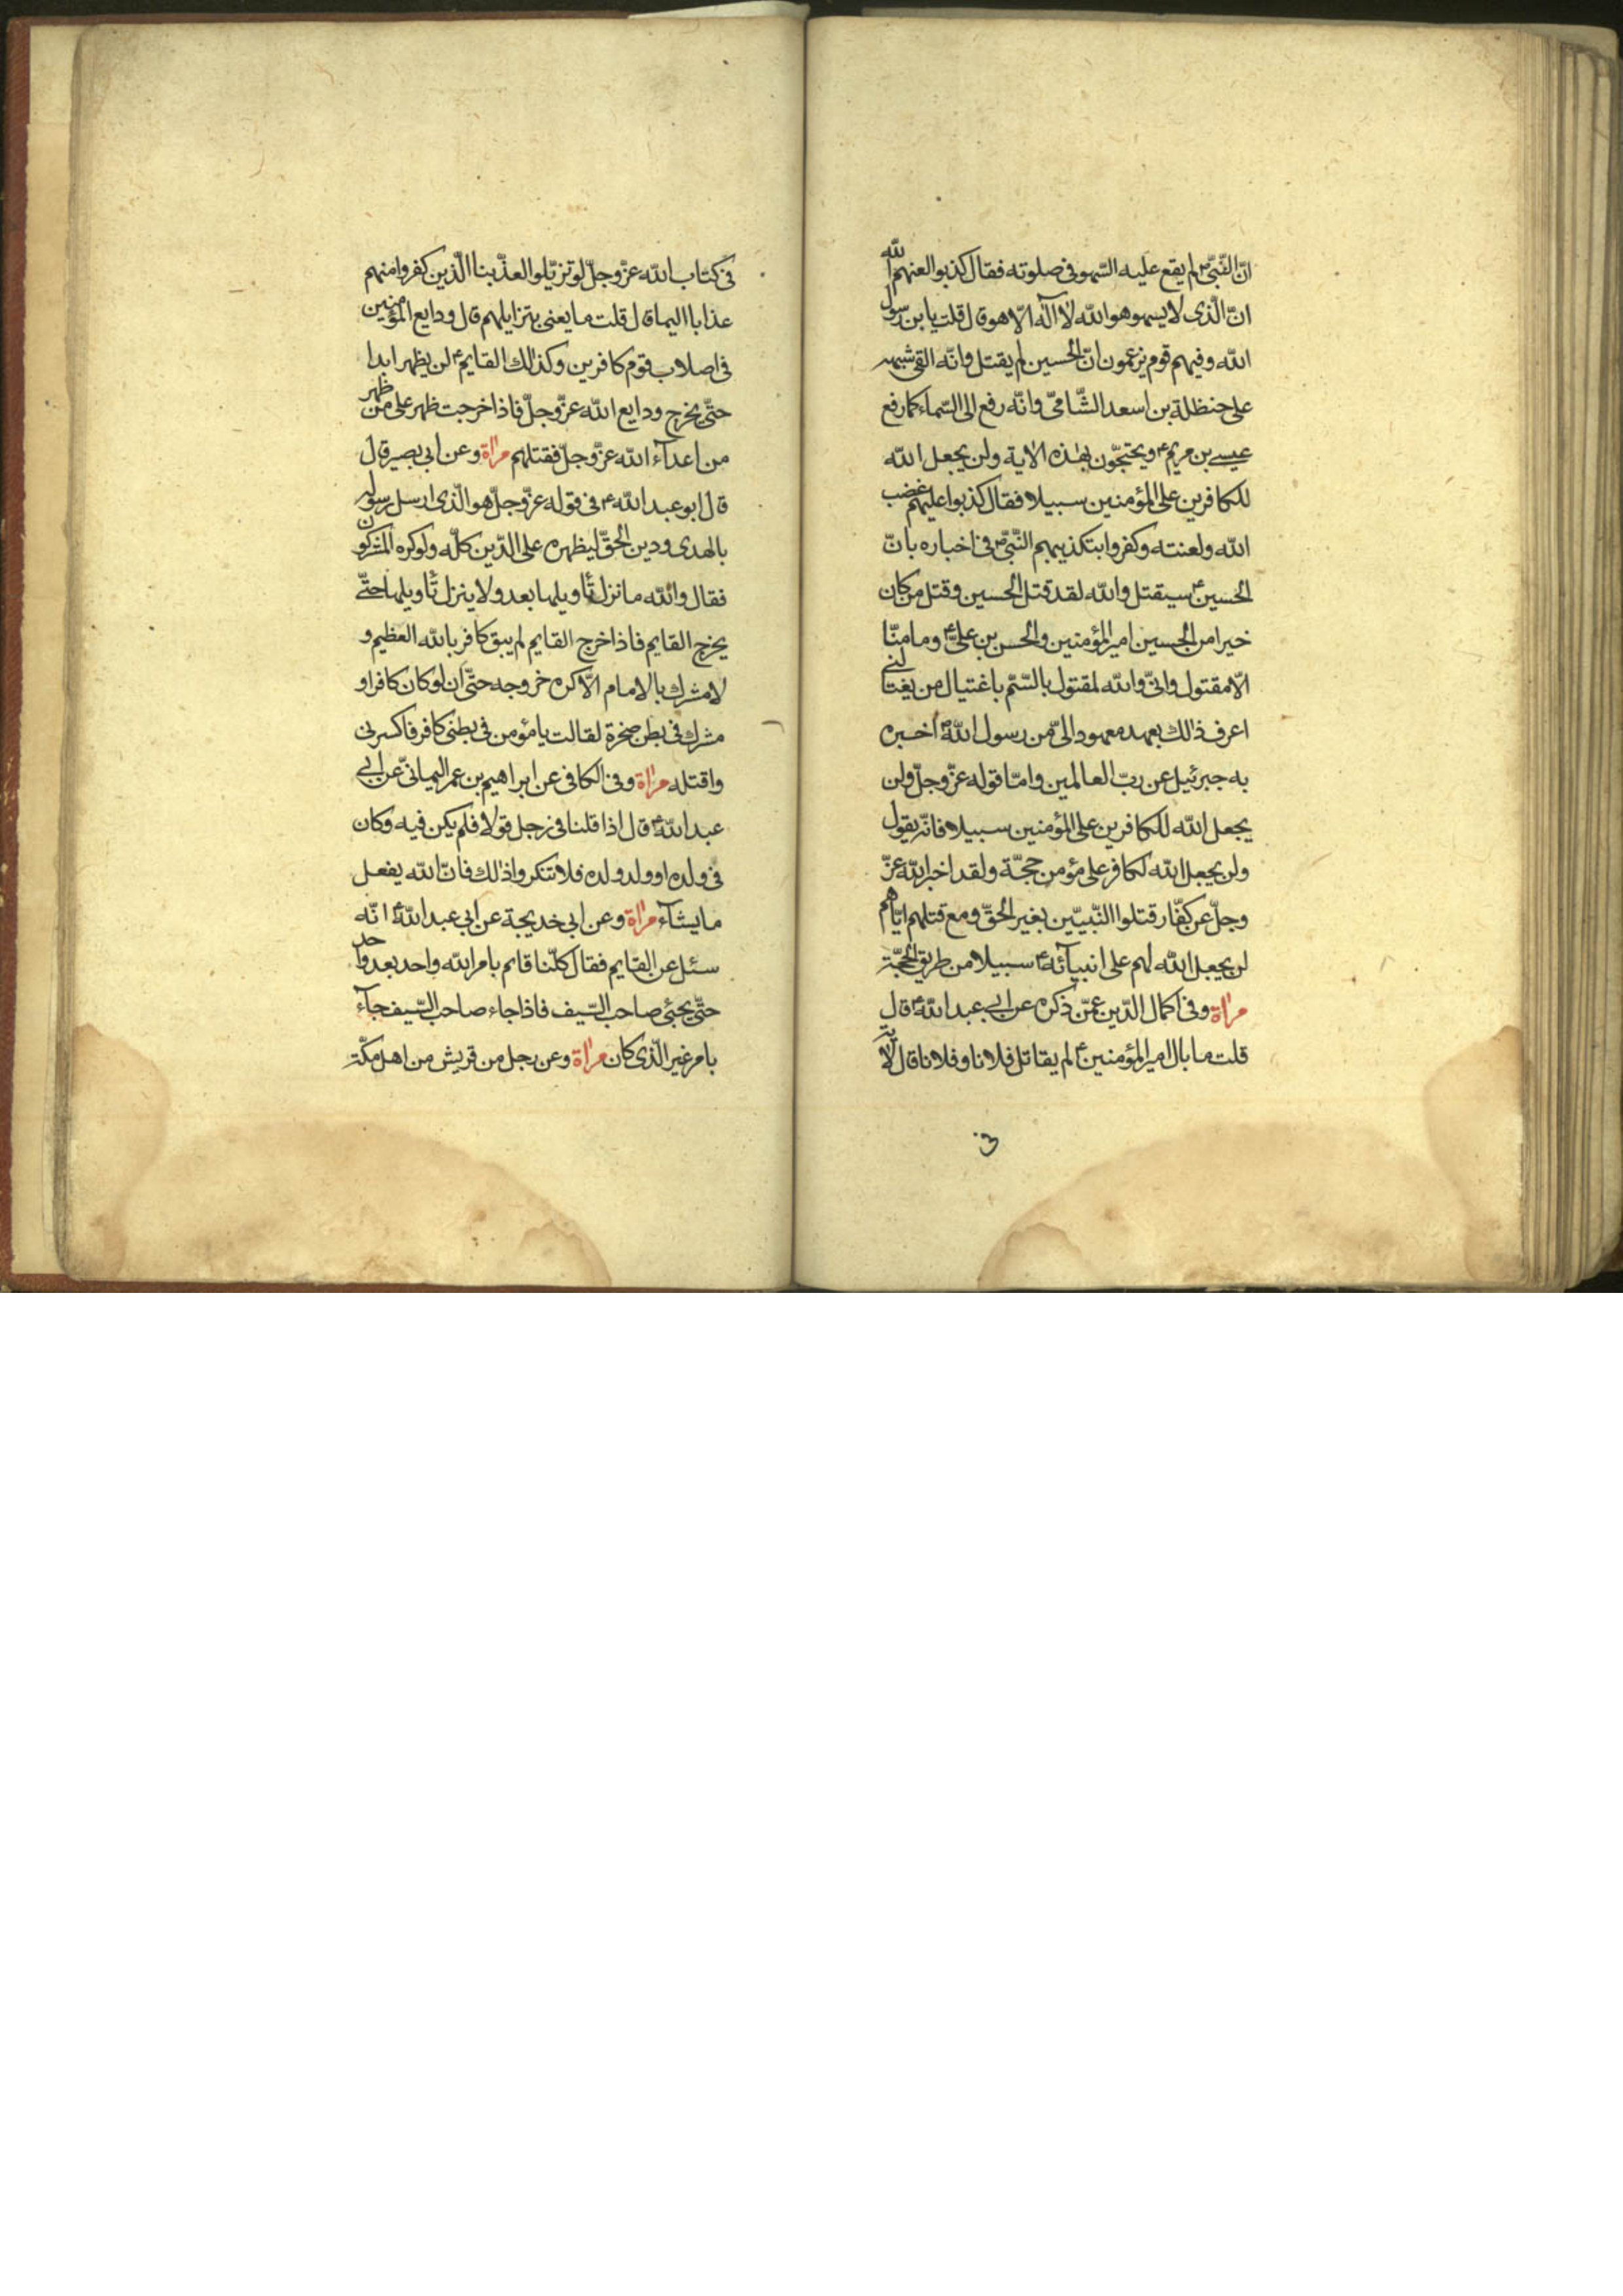 انّ النّبیّ ص لم یقع علیه السّهو فی صلوته فقال کذبوا لعنهم الله
انّ الّذی لا یسهو هو الله لا آله الّا هو قال قلت یا بن رسول
الله و فیهم قوم یزعمون انّ الحسین لم یقتل و انّه القی شبهه
علی حنظلة بن اسعد الشّامیّ و انّه رفع الی السّماء کما رفع
عیسی بن مریم ع و یحتجّون بهذه الایة و لن یجعل الله
للکافرین علی المؤمنین سبیلا فقال کذبوا علیهم غضب
الله و لعنته و کفروا بتکذیبهم النّبیّ ص فی اخباره بانّ
الحسین ع سیقتل و الله لقد قتل الحسین و قتل من کان
خیرا من الحسین امیر المؤمنین و الحسن بن علیّ ع و ما منّا
الّا مقتول و انّی و الله لمقتول بالسّمّ باغتیال من یغتالنی
اعرف ذلك بعهد معهود الیّ من رسول الله ص اخبره
به جبرئیل عن ربّ العالمین و امّا قوله عزّ و جلّ و لن
یجعل الله للکافرین علی المؤمنین سبیلا فانّه یقول
و لن یجعل الله لکافر علی مؤمن حجّة و لقد اخبر الله عزّ
و جلّ عن کفّار قتلوا النّبیّین بغیر الحقّ و مع قتلهم ایّاهم
لن یجعل الله لهم علی انبیآئه ع سبیلا من طریق الحجّة
مرآة و فی اکمال الدّین عمّن ذکره عن ابی عبد الله ع قال
قلت ما بال امیر المؤمنین ع لم یقاتل فلانا و فلانا قال لآیة
فی
فی کتاب الله عزّ و جلّ لو تزیّلوا لعذّبنا الّذین کفروا منهم
عذابا الیما قال قلت ما یعنی بتزایلهم قال ودایع المؤمنین
فی اصلاب قوم کافرین و کذلك القایم ع لن یظهر ابدا
حتّی یخرج ودایع الله عزّ و جلّ فاذا خرجت ظهر علی من ظهر
من اعدآء الله عزّ و جلّ فقتلهم مرآة و عن ابی بصیر قال
قال ابو عبد الله ع فی قوله عزّ و جلّ هو الّذی ارسل رسوله
بالهدی و دین الحقّ لیظهره علی الدّین کلّه و لو کره المشرکون
فقال و الله ما نزل تأویلها بعد و لا ینزل تأویلها حتّی
یخرج القایم فاذا خرج القایم لم یبق کافر بالله العظیم و
لا مشرك بالامام الّا کره خروجه حتّی ان لو کان کافر او
مشرك فی بطن صخرة لقالت یا مؤمن فی بطنی کافر فاکسرنی
و اقتله مرآة و فی الکافی عن ابراهیم بن عمر الیمانیّ عن ابی
عبد الله ع قال اذا قلنا فی رجل قولا فلم یکن فیه و کان
فی ولده او ولد ولده فلا تنکروا ذلك فانّ الله یفعل
ما یشآء مرآة و عن ابی خدیجة عن ابی عبد الله ع انّه
سئل عن القایم فقال کلّنا قائم بامر الله واحد بعد واحد
حتّی یجئ صاحب السّیف فاذا جاء صاحب السّیف جآء
بامر غیر الّذی کان مرآة و عن رجل من قریش من اهل مکّة